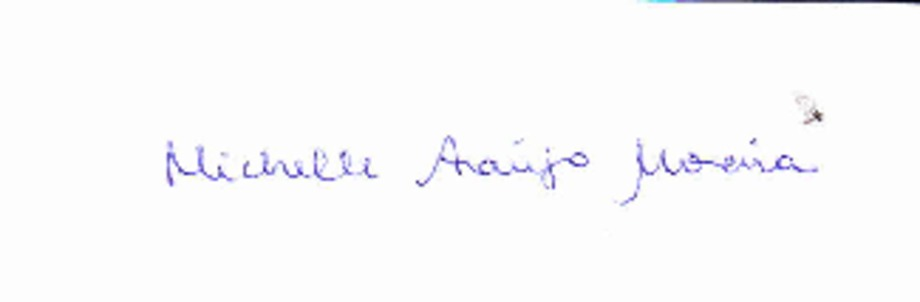 Michelle Araújo Moreira